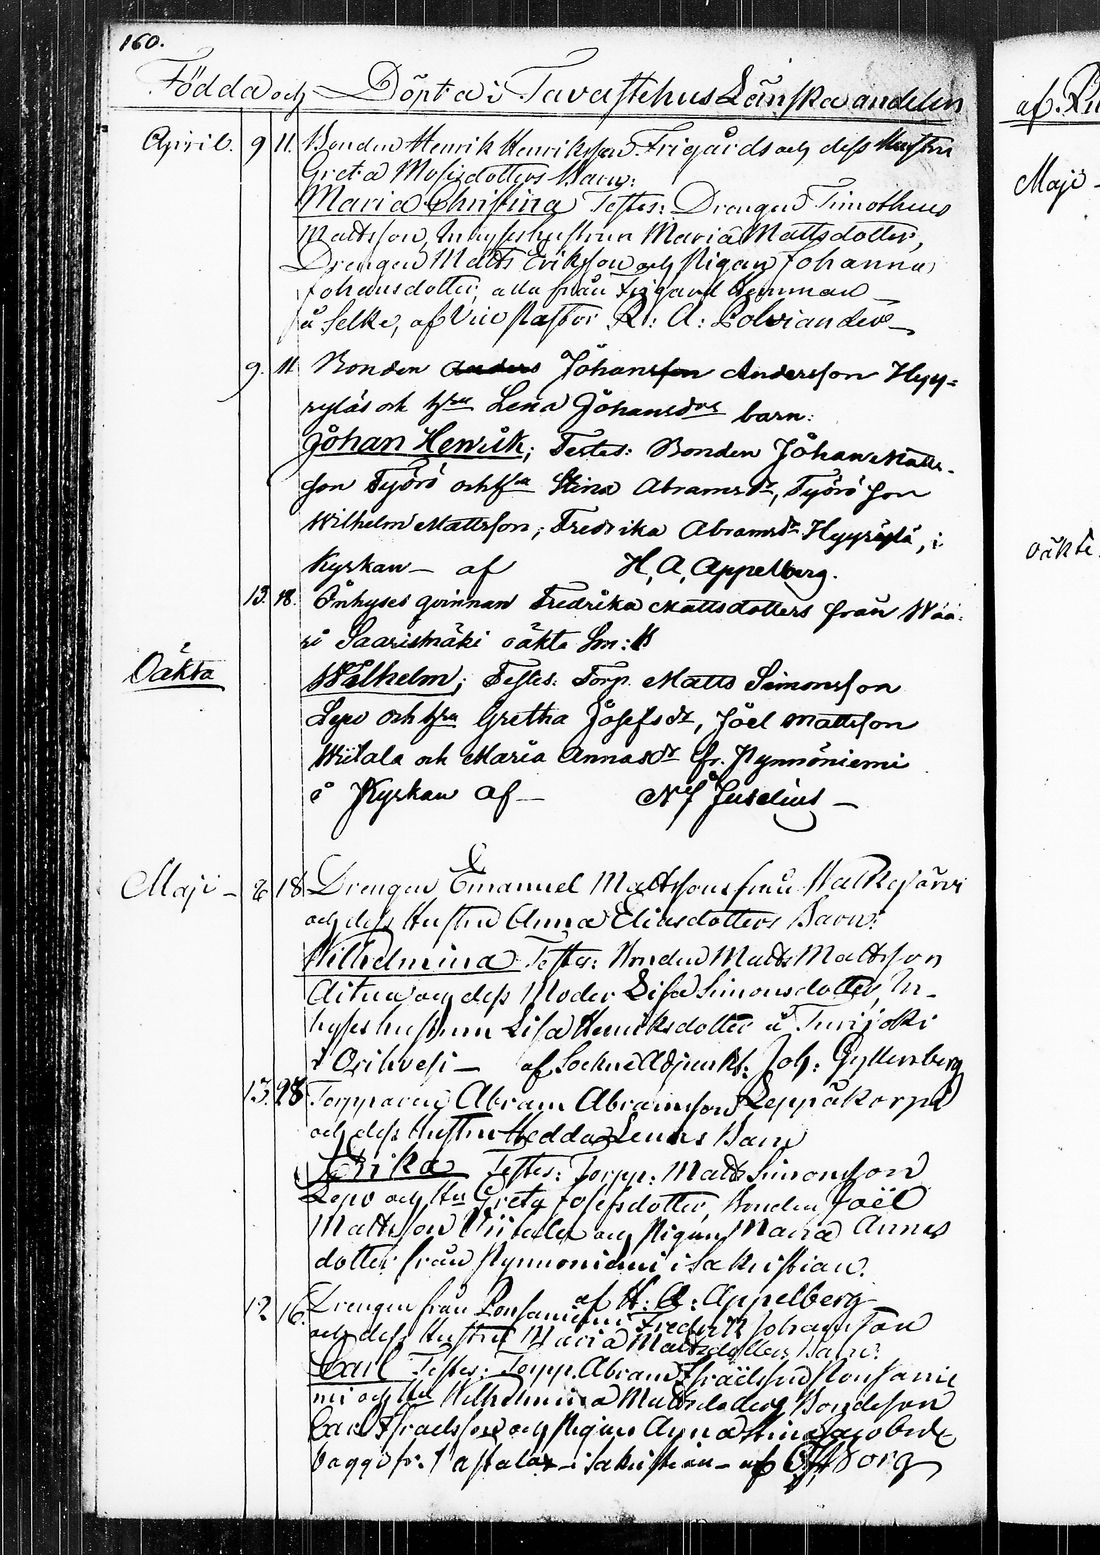 160.
Födda och Döpta i Tavastehus Länska andelen
af
April. 9 11. Bonden Henrik Henriksson Frigårds och dess Hustru
Greta Mosisdotters Barn:
Maria Christina Testes: Drengen Timotheus
Mattsson, Inhyseshustrun Maria Mattsdotter,
Drengen Matts Eriksson och Pigan Johanna
Johansdotter, alla från Frigård hemman
af Vice Pastor A:
Majo
9. 11. Bonden Anders Johansson Andersson Hyy=
rylás och hru Lena Johansdrs barn:
Johan Henrik; Testes: Bonden Johan Matts-
son Työrö och hru Stina Abramsdr, Työrö Son
Wilhelm Mattsson, Fredrika Abramsdr Hyyrylä, i
Kyrkan – af H. A. Appelberg.
oäkta
13. 18. Inhyses qvinnan Fredrika Mattsdotters från Wää-
ri Saarismäki oäkta Son:
Oäkta
Wilhelm; Testes: Torp. Matts Simonsson
Lepo och hru Gretha Josefsdr, Joel Mattsson
Wiitala och Maria Annasdr fr. Nynnöniemi
i Kyrkan af – Juselius –
Maji – 8 18 Drengen Emanuel Mattssons från Walkejärvi
och dess Hustru Anna Eliasdotters Barn:
Wilhelmina Testes: Bonden Matts Mattsson
Aitua och dess Moder Lisa Simonsdotter, In-
hyseshustrun Lisa Henriksdotter å Turijoki
i Orihvesi – af Sockne Adjunkt: Joh: Gyllenberg
13. 28 Torpparen Abram Abramsson Leppäkorpi
och dess Hustru Hedda Lenas Barn
Erika Testes: Torpp: Matts Simonsson
Lepo och Hu Greta Josefsdotter, Bonden Joël
Mattsson Viitala och Pigan Maria Annas
dotter från Nynnoniemi i Sakristian.
af H: A: Appelberg
12 16. Drengen från Fredrik Johansson
och dess Hustru Maria Mattsdotters Barn:
Carl Testes: Torpp. Abram Israelsson
mi och Hu Wilhelmina Mattsdotter, Bondeson
Carl Israelsson och Pigan
bägge fr. – i Sakristian – af Borg